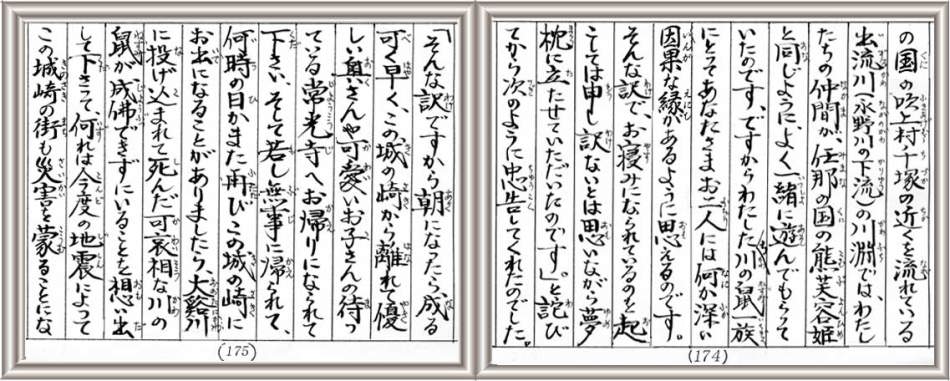 の国の吹上村千塚の近くを流れている
出流川(永野川の下流)の川淵では、わたし
たちの仲間が、任那の国の熊芙容姫
と同じように、よく一緒に遊んでもらって
いたのです。ですからわたしたち川の鼠一族
にとってあなたさまお二人には何か深い
因果な縁があるように思えるのです。
そんな訳で、お寝みになられているのを起
こしては申し訳ないとは思いながら夢
枕に立たせていただいたのです」。と詫び
てから次のように忠告してくれたのでした。
(174)
「そんな訳ですから朝になったら、成る
可く早く、この城の崎から離れて優
しい奥さんや可愛いお子さんの待っ
ている常光寺へお帰りになられて
下さい、そして若し無事に帰られて、
何時の日かまた再びこの城の崎に
お出になることがありましたら、大谿川
に投げ込まれて死んだ可哀相な川の
鼠が、成佛できずにいることを想い出
して下さって、何れは今度の地震によって
この城崎の街も災害を蒙ることにな
(175)